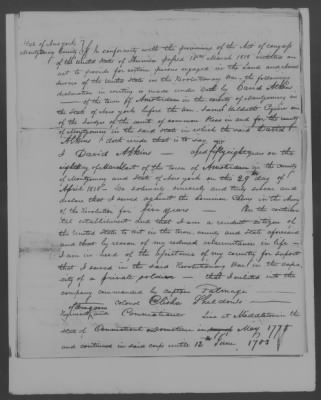 State of New york
Montgomery County } In conformity with the provisions of the Act of congress
of the United States of America passed 18th March 1818 entitled an
act to provide for certain persons engaged in the Land and Naval
service of the United States in the Revolutionary War, the following
declaration in writing is made under oath by David Atkins
of the town of Amsterdam in the county of Montgomery in
the State of New york before the Hon. Samuel
of the Judges of the court of common Pleas in and for the county
of Montgomery in the said State in which the said David
Atkins doth declare that is to say
I David Atkins aged fifty eight years on the
day of of the town of Amsterdam in the county
of Montgomery and State of New york on the 29 day of
April 1818 Do solemnly sincerely and truly swear and
declare that I served against the common Enemy in the Army
of the Revolution for five years On the continen
tal establishment and that I am a resident citizen of
the United States to wit in the town, county and State aforesaid
and that by reason of my reduced circumstances in life
I am in need of the assistance of my country for support
that I served in the said Revolutionary War in the capa
city of a private soldier that I enlisted into the
company commanded by Captain Talmage
Dragoon Colonel Elisha Sheldons
Regiment and Connecticut Line at Middletown in the
State of Connecticut in May 1778
and continued in said corps until 12th June 1783